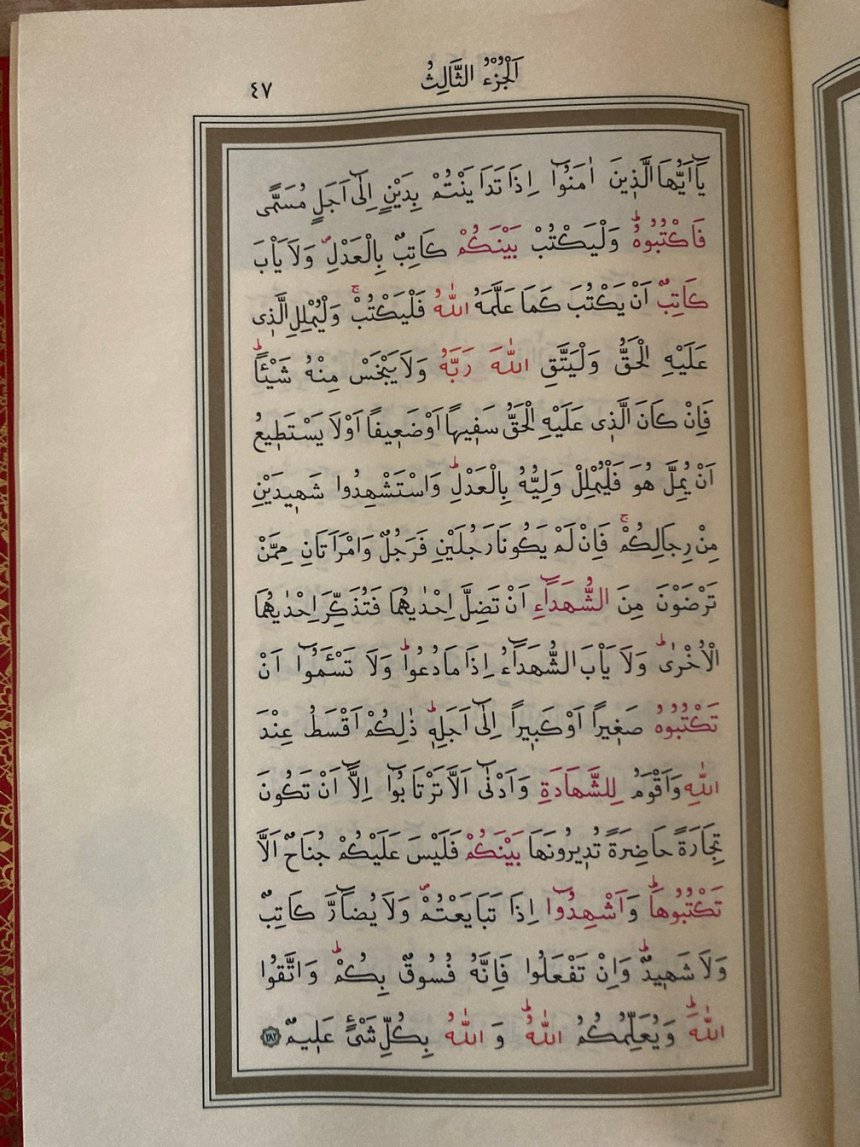 اَلْجُزْءُ الثَّالِثُ
٤٧
يَٓا اَيُّهَا الَّذٖينَ اٰمَنُٓوا اِذَا تَدَايَنْتُمْ بِدَيْنٍ اِلٰٓى اَجَلٍ مُسَمًّى
فَاكْتُبُوهُۜ وَلْيَكْتُبْ بَيْنَكُمْ كَاتِبٌ بِالْعَدْلِۖ وَلَا يَأْبَ
كَاتِبٌ اَنْ يَكْتُبَ كَمَا عَلَّمَهُ اللّٰهُ فَلْيَكْتُبْۚ وَلْيُمْلِلِ الَّذٖى
عَلَيْهِ الْحَقُّ وَلْيَتَّقِ اللّٰهَ رَبَّهُ وَلَا يَبْخَسْ مِنْهُ شَيْـًٔاۜ
فَاِنْ كَانَ الَّذٖى عَلَيْهِ الْحَقُّ سَفٖيهًا اَوْ ضَعٖيفًا اَوْ لَا يَسْتَطٖيعُ
اَنْ يُمِلَّ هُوَ فَلْيُمْلِلْ وَلِيُّهُ بِالْعَدْلِۜ وَاسْتَشْهِدُوا شَهٖيدَيْنِ
مِنْ رِجَالِكُمْۚ فَاِنْ لَمْ يَكُونَا رَجُلَيْنِ فَرَجُلٌ وَامْرَاَتَانِ مِمَّنْ
تَرْضَوْنَ مِنَ الشُّهَدَٓاءِ اَنْ تَضِلَّ اِحْدٰيهُمَا فَتُذَكِّرَ اِحْدٰيهُمَا
الْاُخْرٰىۜ وَلَا يَأْبَ الشُّهَدَٓاءُ اِذَا مَا دُعُواۜ وَلَا تَسْـَٔمُٓوا اَنْ
تَكْتُبُوهُ صَغٖيرًا اَوْ كَبٖيرًا اِلٰٓى اَجَلِهٖۜ ذٰلِكُمْ اَقْسَطُ عِنْدَ
اللّٰهِ وَاَقْوَمُ لِلشَّهَادَةِ وَاَدْنٰٓى اَلَّا تَرْتَابُٓوا اِلَّٓا اَنْ تَكُونَ
تِجَارَةً حَاضِرَةً تُدٖيرُونَهَا بَيْنَكُمْ فَلَيْسَ عَلَيْكُمْ جُنَاحٌ اَلَّا
تَكْتُبُوهَاۜ وَاَشْهِدُٓوا اِذَا تَبَايَعْتُمْۖ وَلَا يُضَٓارَّ كَاتِبٌ
وَلَا شَهٖيدٌۜ وَاِنْ تَفْعَلُوا فَاِنَّهُ فُسُوقٌ بِكُمْۜ وَاتَّقُوا
اللّٰهَۜ وَيُعَلِّمُكُمُ اللّٰهُۜ وَاللّٰهُ بِكُلِّ شَیْءٍ عَلٖيمٌ ﴿٢٨٢﴾